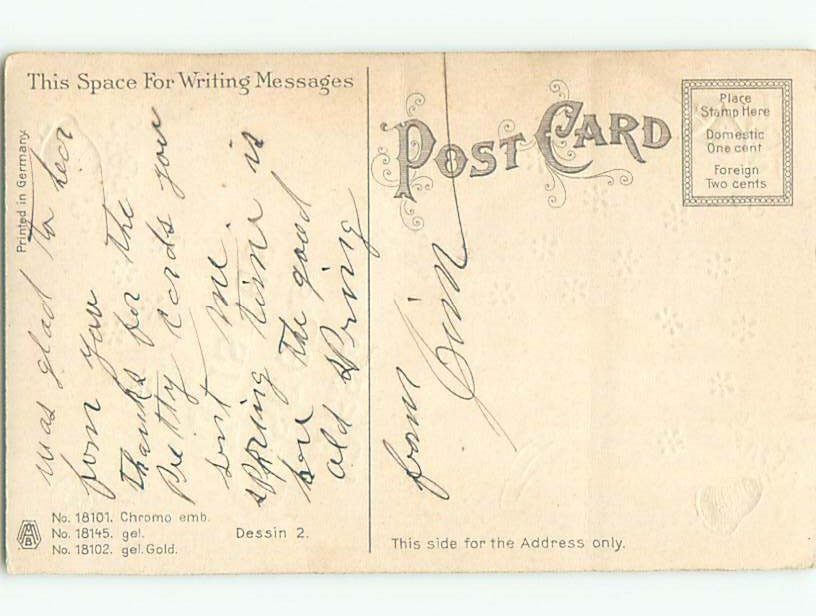 This Space For Writing Messages
Printed in Germany
was glad to hear
from you
thanks for the
Pretty cards you
sent me.
spring time is
here the good
old spring
from Jim
POST CARD
Place
Stamp Here
Domestic
One cent
Foreign
Two cents
No. 18101. Chromo emb.
No. 18145. gel.
No. 18102. gel. Gold.
Dessin 2.
This side for the Address only.